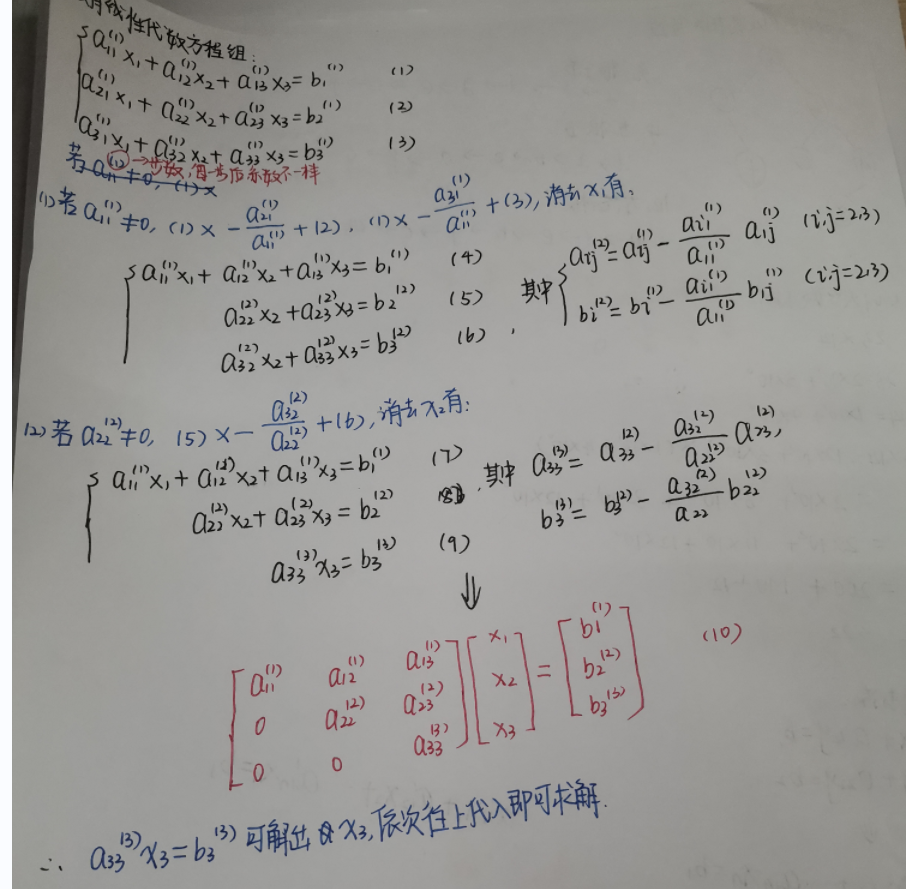 线性代数方程组:
a₁₁⁽¹⁾x₁+a₁₂⁽¹⁾x₂+a₁₃⁽¹⁾x₃=b₁⁽¹⁾ (1)
a₂₁⁽¹⁾x₁+a₂₂⁽¹⁾x₂+a₂₃⁽¹⁾x₃=b₂⁽¹⁾ (2)
a₃₁⁽¹⁾x₁+a₃₂⁽¹⁾x₂+a₃₃⁽¹⁾x₃=b₃⁽¹⁾ (3)
若a₁₁⁽¹⁾≠0, (1)× →步数,每一步后系数不一样
(1)若a₁₁⁽¹⁾≠0, (1)×-a₂₁⁽¹⁾/a₁₁⁽¹⁾+(2), (1)×-a₃₁⁽¹⁾/a₁₁⁽¹⁾+(3),消去x₁有:
a₁₁⁽¹⁾x₁+a₁₂⁽¹⁾x₂+a₁₃⁽¹⁾x₃=b₁⁽¹⁾ (4)
a₂₂⁽²⁾x₂+a₂₃⁽²⁾x₃=b₂⁽²⁾ (5)
a₃₂⁽²⁾x₂+a₃₃⁽²⁾x₃=b₃⁽²⁾ (6),
其中
aᵢⱼ⁽²⁾=aᵢⱼ⁽¹⁾-aᵢ₁⁽¹⁾/a₁₁⁽¹⁾ a₁ⱼ⁽¹⁾ (i,j=2,3)
bᵢ⁽²⁾=bᵢ⁽¹⁾-aᵢ₁⁽¹⁾/a₁₁⁽¹⁾ b₁ⱼ⁽¹⁾ (i,j=2,3)
(2)若a₂₂⁽²⁾≠0, (5)×-a₃₂⁽²⁾/a₂₂⁽²⁾+(6),消去x₂有:
a₁₁⁽¹⁾x₁+a₁₂⁽¹⁾x₂+a₁₃⁽¹⁾x₃=b₁⁽¹⁾ (7)
a₂₂⁽²⁾x₂+a₂₃⁽²⁾x₃=b₂⁽²⁾ (8)
a₃₃⁽³⁾x₃=b₃⁽³⁾ (9)
,其中 a₃₃⁽³⁾=a₃₃⁽²⁾-a₃₂⁽²⁾/a₂₂⁽²⁾ a₂₃⁽²⁾,
b₃⁽³⁾=b₃⁽²⁾-a₃₂⁽²⁾/a₂₂ b₂₂⁽²⁾
⇓
a₁₁⁽¹⁾ a₁₂⁽¹⁾ a₁₃⁽¹⁾ x₁ b₁⁽¹⁾
0 a₂₂⁽²⁾ a₂₃⁽²⁾ x₂ = b₂⁽²⁾ (10)
0 0 a₃₃⁽³⁾ x₃ b₃⁽³⁾
∴ a₃₃⁽³⁾x₃=b₃⁽³⁾可解出x₃,依次往上代入即可求解.